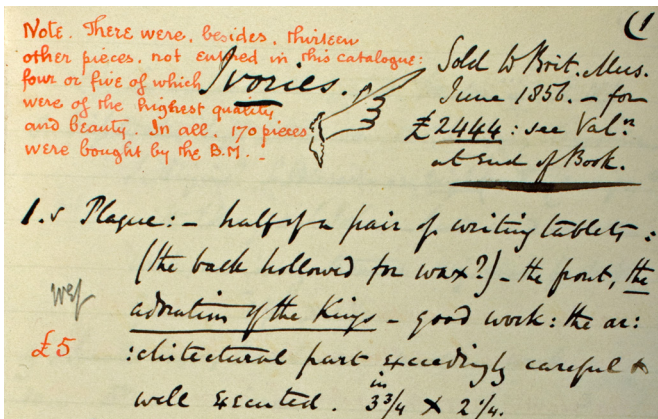 (1
Note. There were, besides, thirteen
other pieces, not entered in this catalogue:
four or five of which
were of the highest quality
and beauty. In all, 170 pieces
were bought by the B.M. -
Ivories.
Sold to Brit. Mus.
June 1856. - for
£2444: see Valn.
at End of Book.
1.s Plaque: - half of a pair of writing tablets:
(the back hollowed for wax?) - the front, the
adoration of the Kings - good work: the ar:
£5
:chitectural part exceedingly careful &
well executed. 3 3/4 in × 2 1/4.